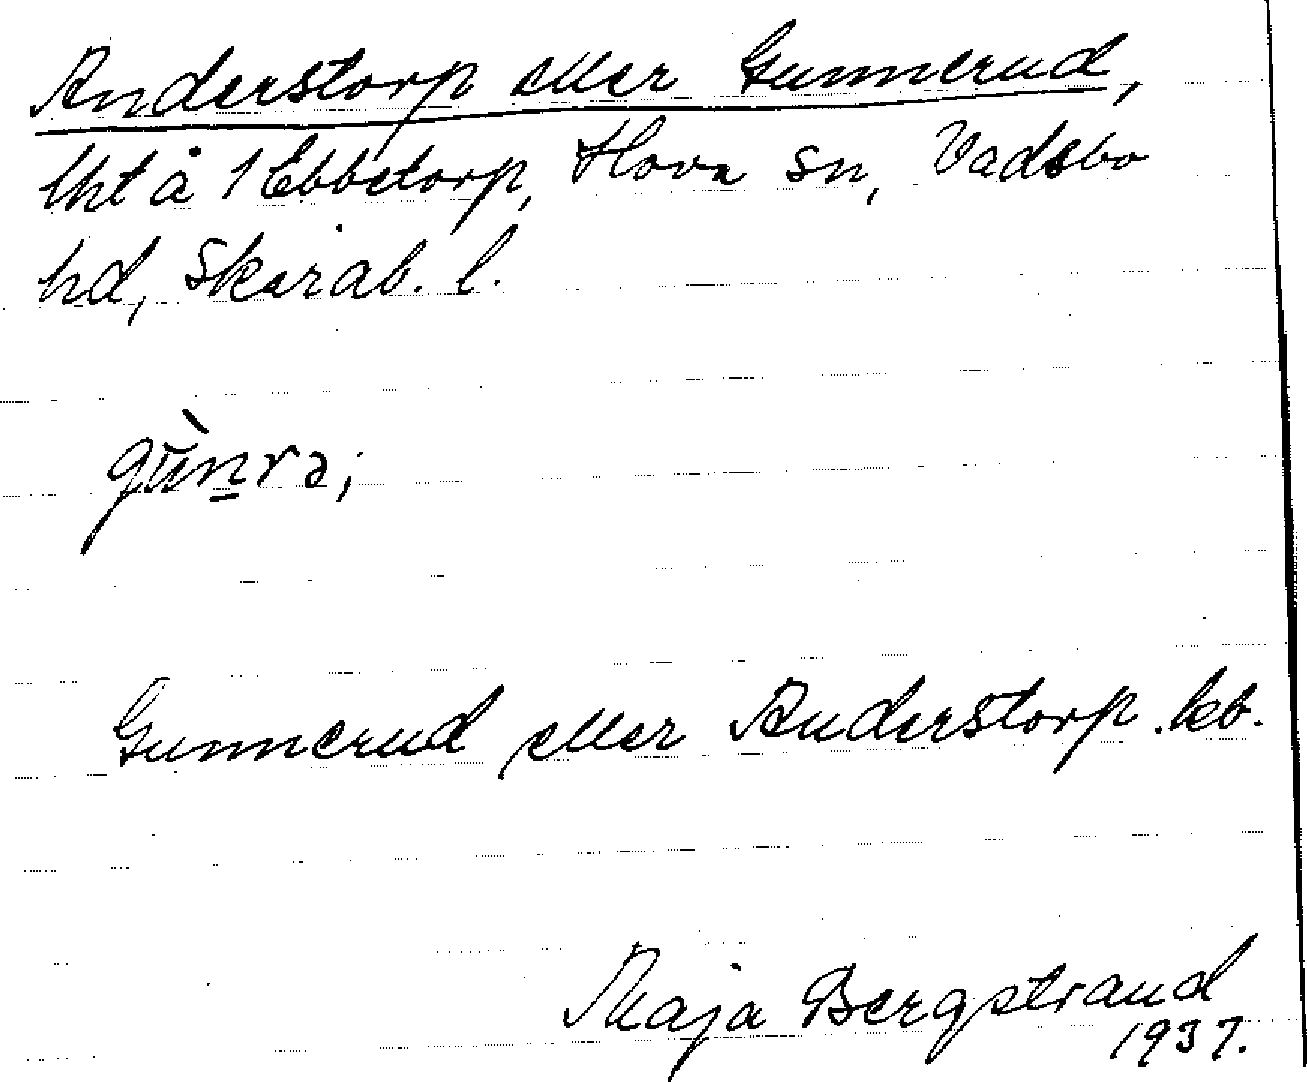 Anderstorp eller Gunnerud,
lht å 1 Ebbetorp, Hova sn, Vadsbo
hd, Skarab. l.
gùn̠rə;
Gunnerud eller Anderstorp. kb.
Maja Bergstrand
1937.